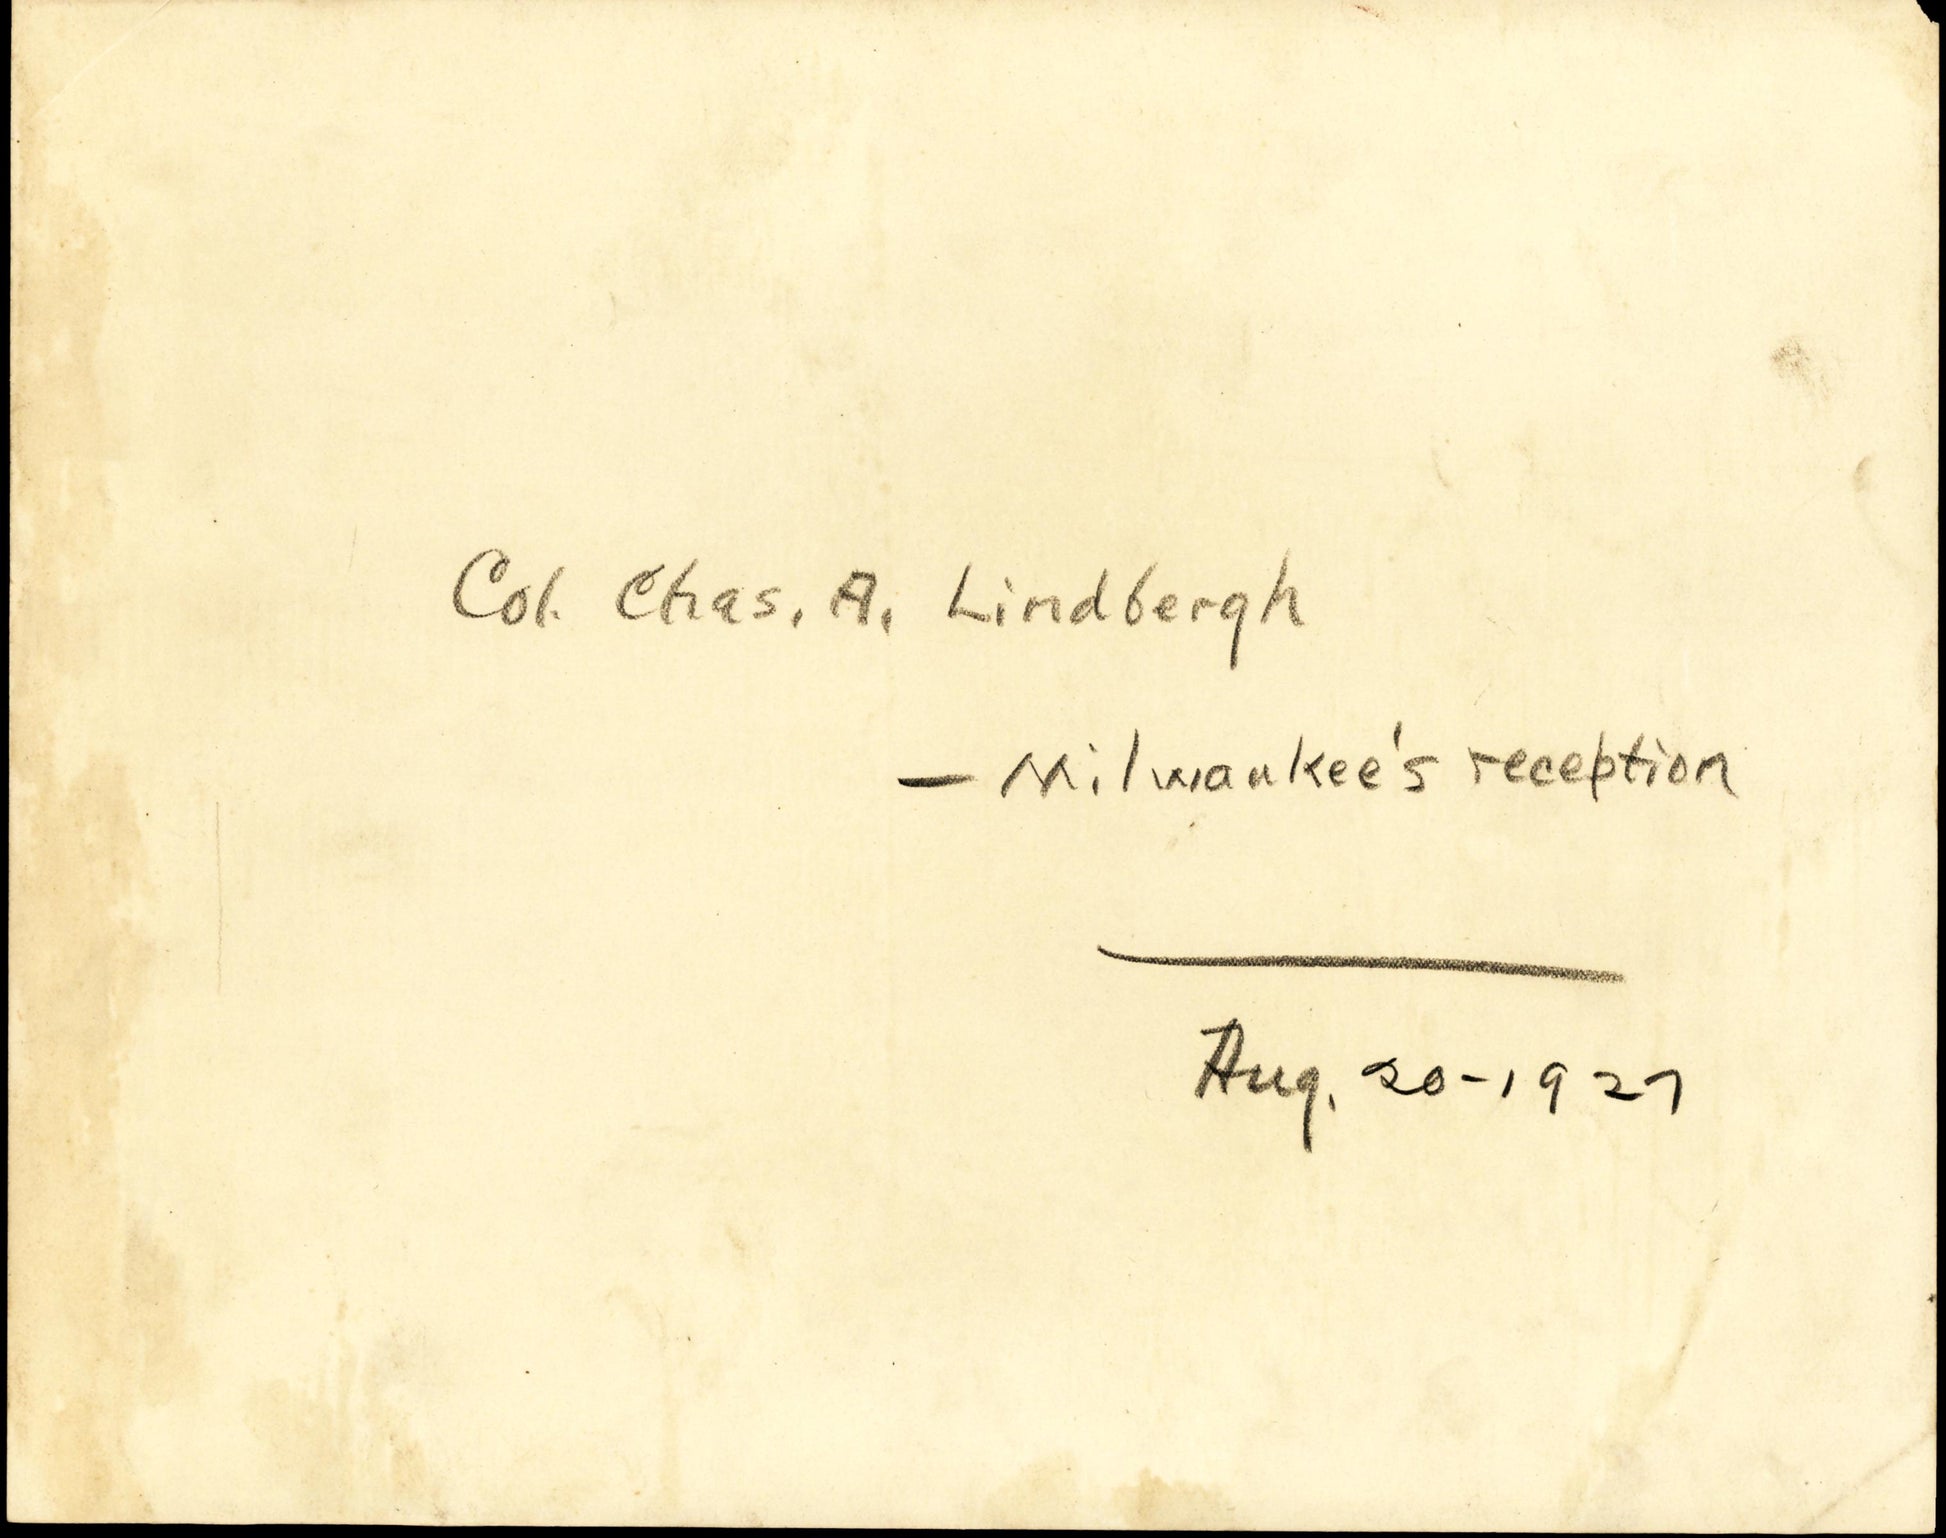 Col. Chas. A. Lindbergh
— Milwaukee's reception
Aug. 20-1927